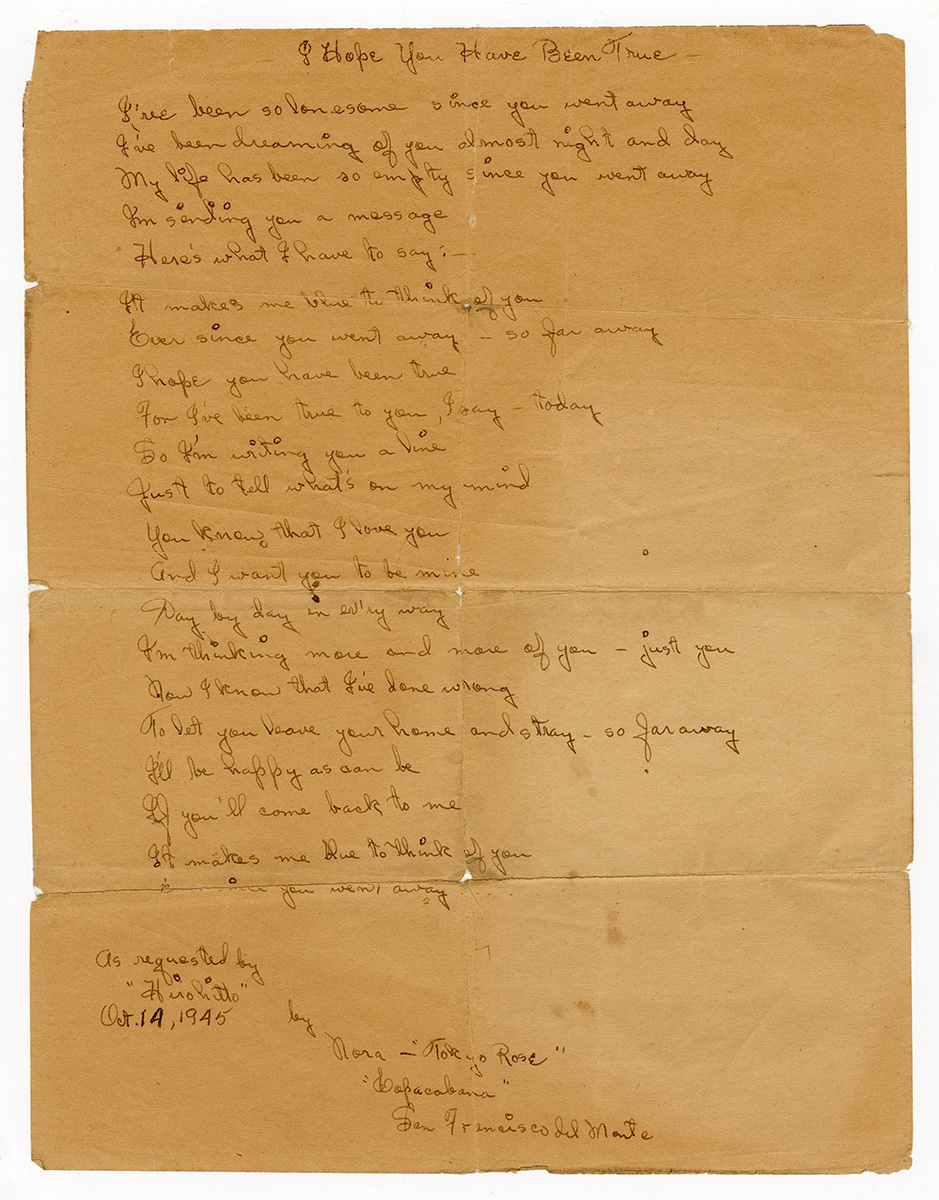 — I Hope You Have Been True —
I've been so lonesome since you went away
I've been dreaming of you almost night and day
My life has been so empty since you went away
I'm sending you a message
Here's what I have to say: —
It makes me blue to think of you
Ever since you went away — so far away
I hope you have been true
For I've been true to you, I say — today
So I'm writing you a line
Just to tell what's on my mind
You know, that I love you
And I want you to be mine
Day by day in ev'ry way
I'm thinking more and more of you — just you
Now I know that I've done wrong
To let you leave your home and stray — so far away
I'll be happy as can be
If you'll come back to me
It makes me blue to think of you
since you went away ...
As requested by
"Hirohitto"
Oct. 14, 1945
by
Nora — "Tokyo Rose"
"Copacabana"
San Francisco del Monte